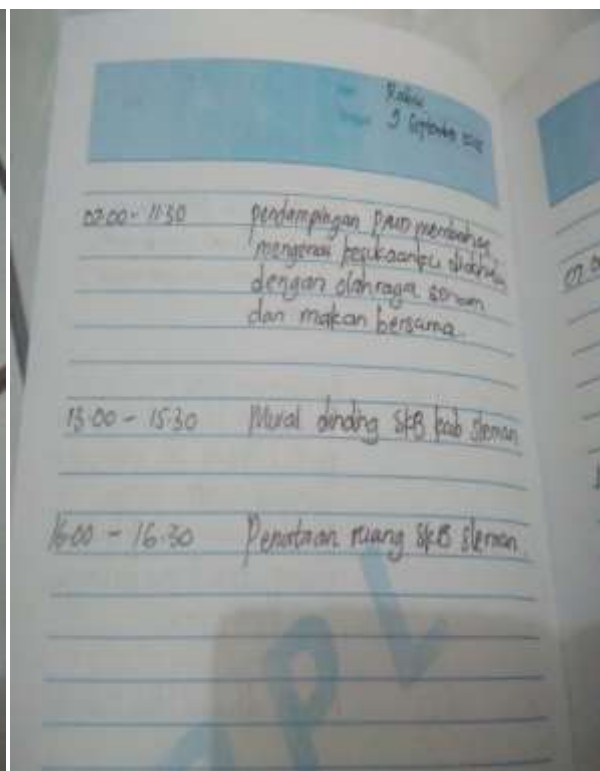 Rabu
9 September
07.00 - 11.30 pendampingan PAUD membahas
mengenai kesukaanku
dengan olahraga senam
dan makan bersama.
13.00 - 15.30 Mural dinding SKB kab sleman
16.00 - 16.30 Penataan ruang SKB Sleman
PPL
07.0